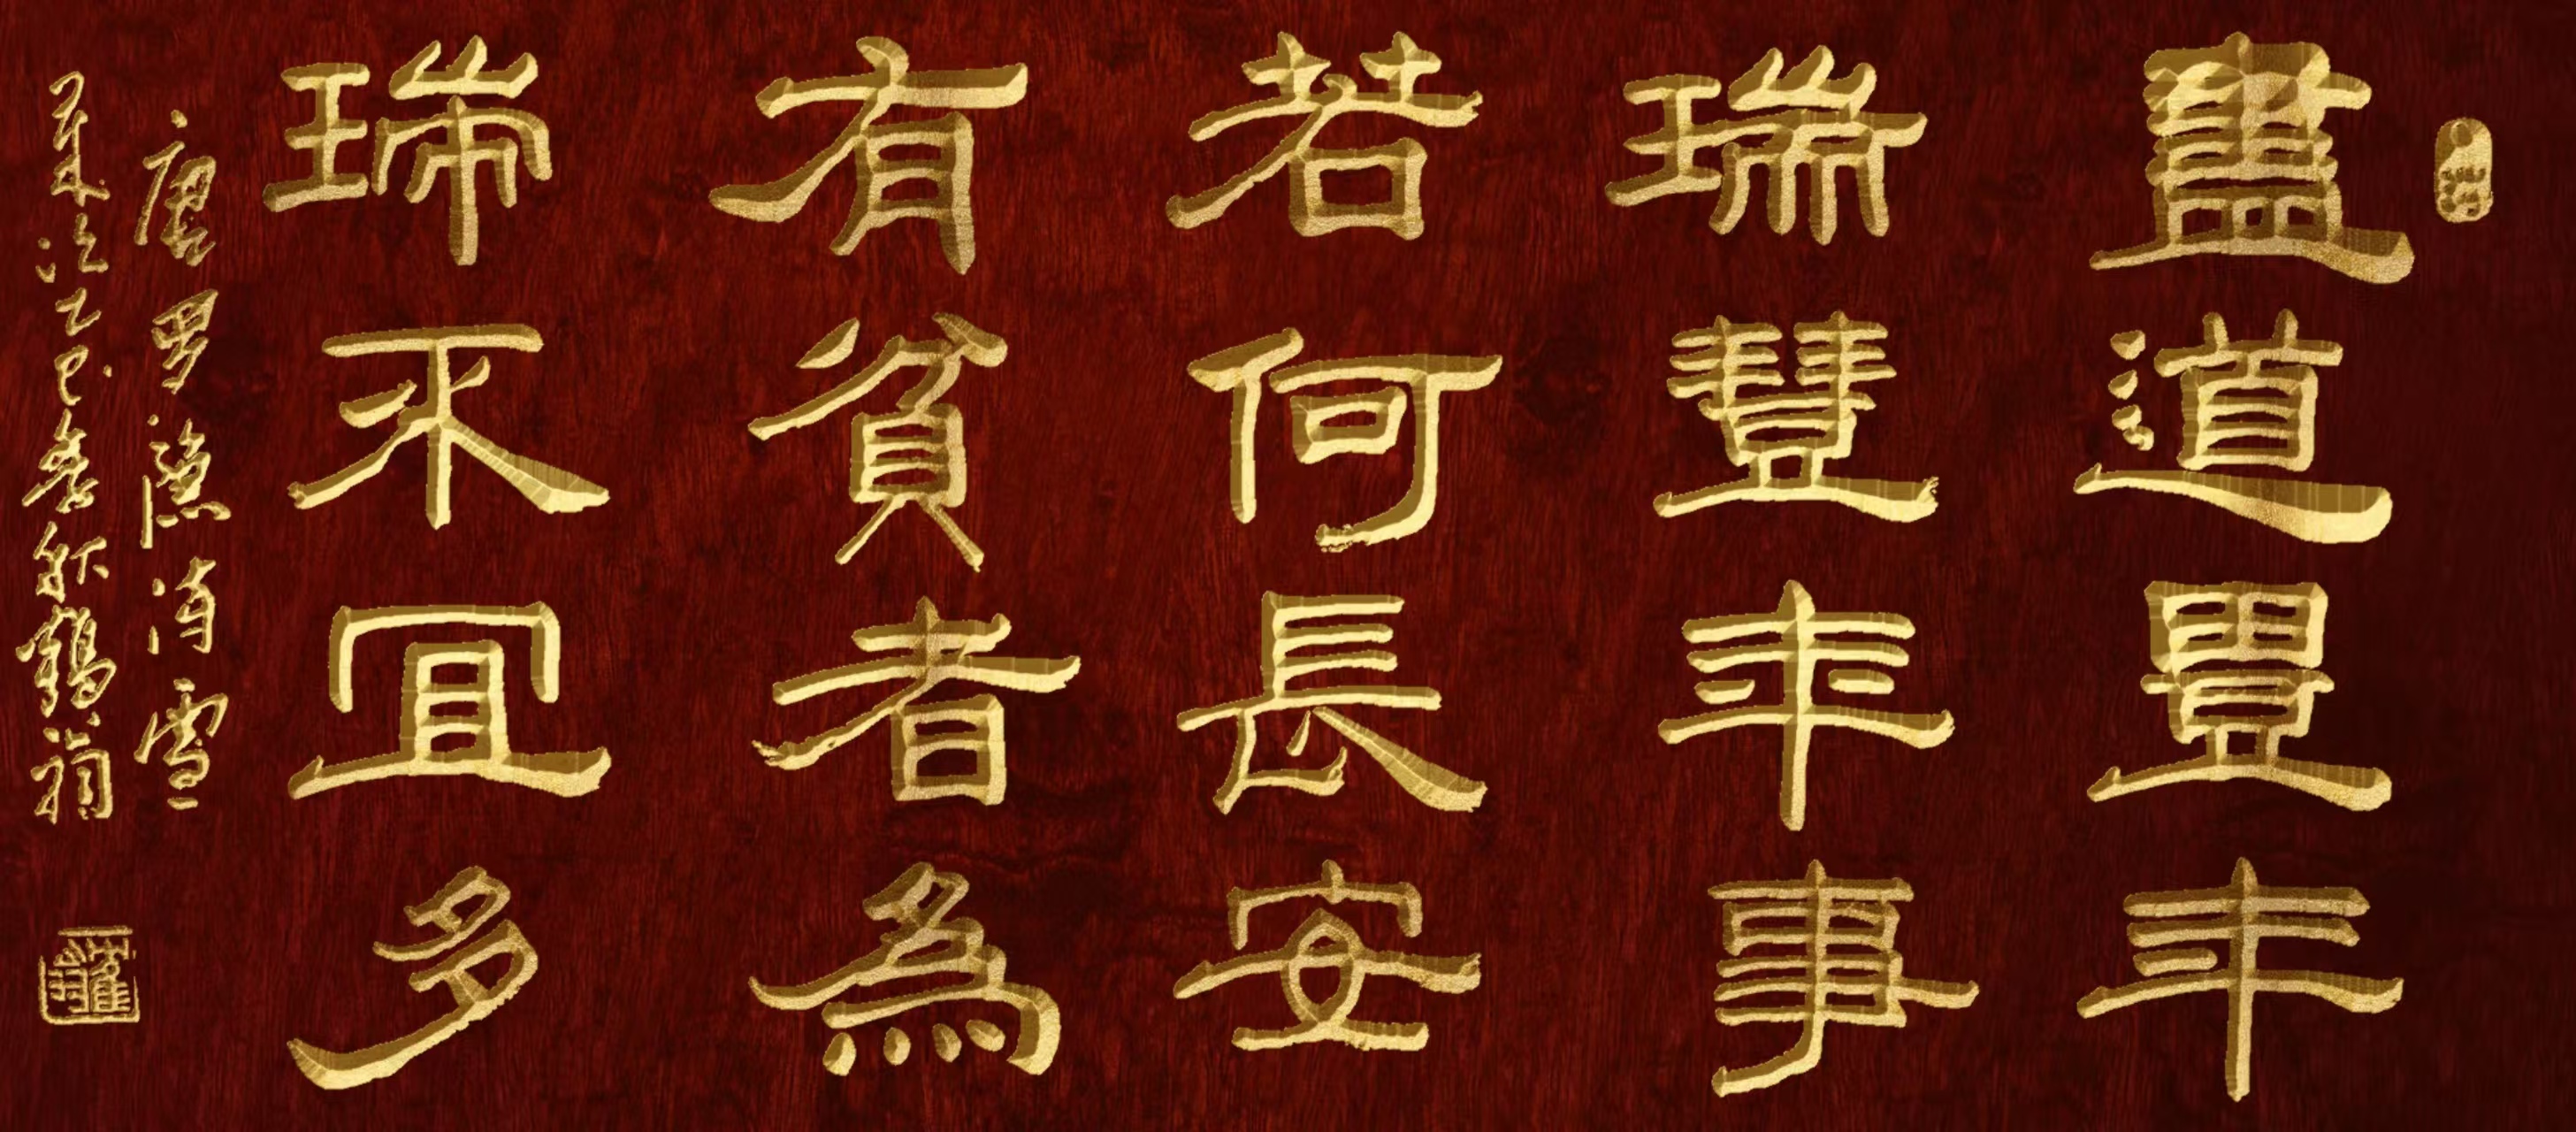 盡道豐年
瑞豐年事
若何長安
有貧者為
瑞不宜多
唐罗隐诗雪
乙巳秋鶴翁